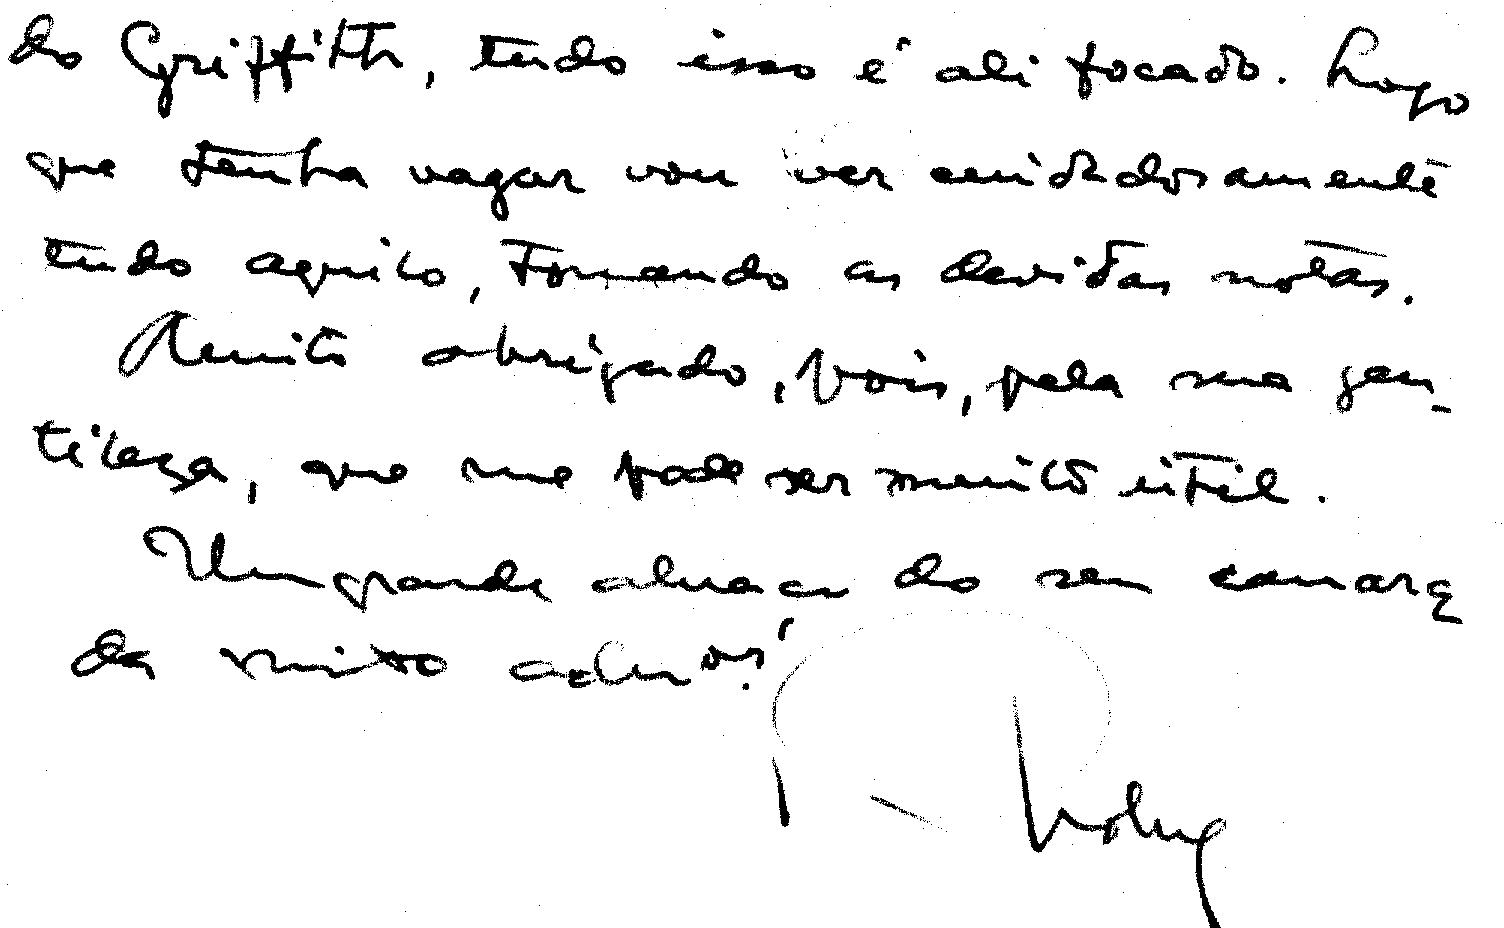 do Griffith, tudo isso é ali focado. Logo
que tenha vagar vou ver cuidadosamente
tudo aquilo, tomando as devidas notas.
Muito obrigado, pois, pela sua gen-
tileza, que me pode ser muito útil.
Um grande abraço do seu camara
da muito